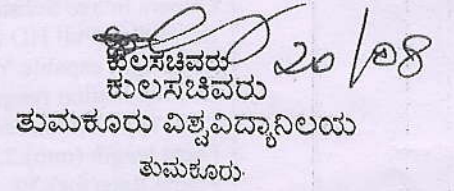 20/08
ಕುಲಸಚಿವರು
ಕುಲಸಚಿವರು
ತುಮಕೂರು ವಿಶ್ವವಿದ್ಯಾನಿಲಯ
ತುಮಕೂರು.